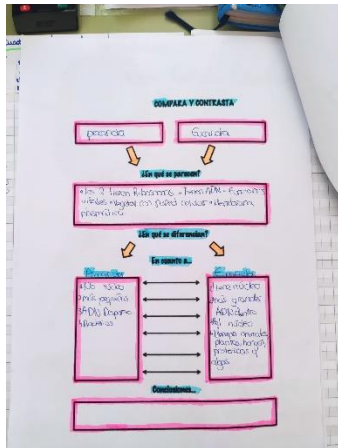 COMPARA Y CONTRASTA
procariota Eucariota
¿En qué se parecen?
• Los 2 tienen Ribosomas - Tienen ADN - Funciones
vitales • vegetal con pared celular • Membrana
plasmática
¿En qué se diferencian?
En cuanto a...
Procariota
No núcleo
más pequeña
ADN Disperso
Bacterias
Eucariota
Tiene núcleo
más grandes
ADN dentro
núcleo
animales,
plantas, hongos,
protozoos y
algas
Conclusiones...